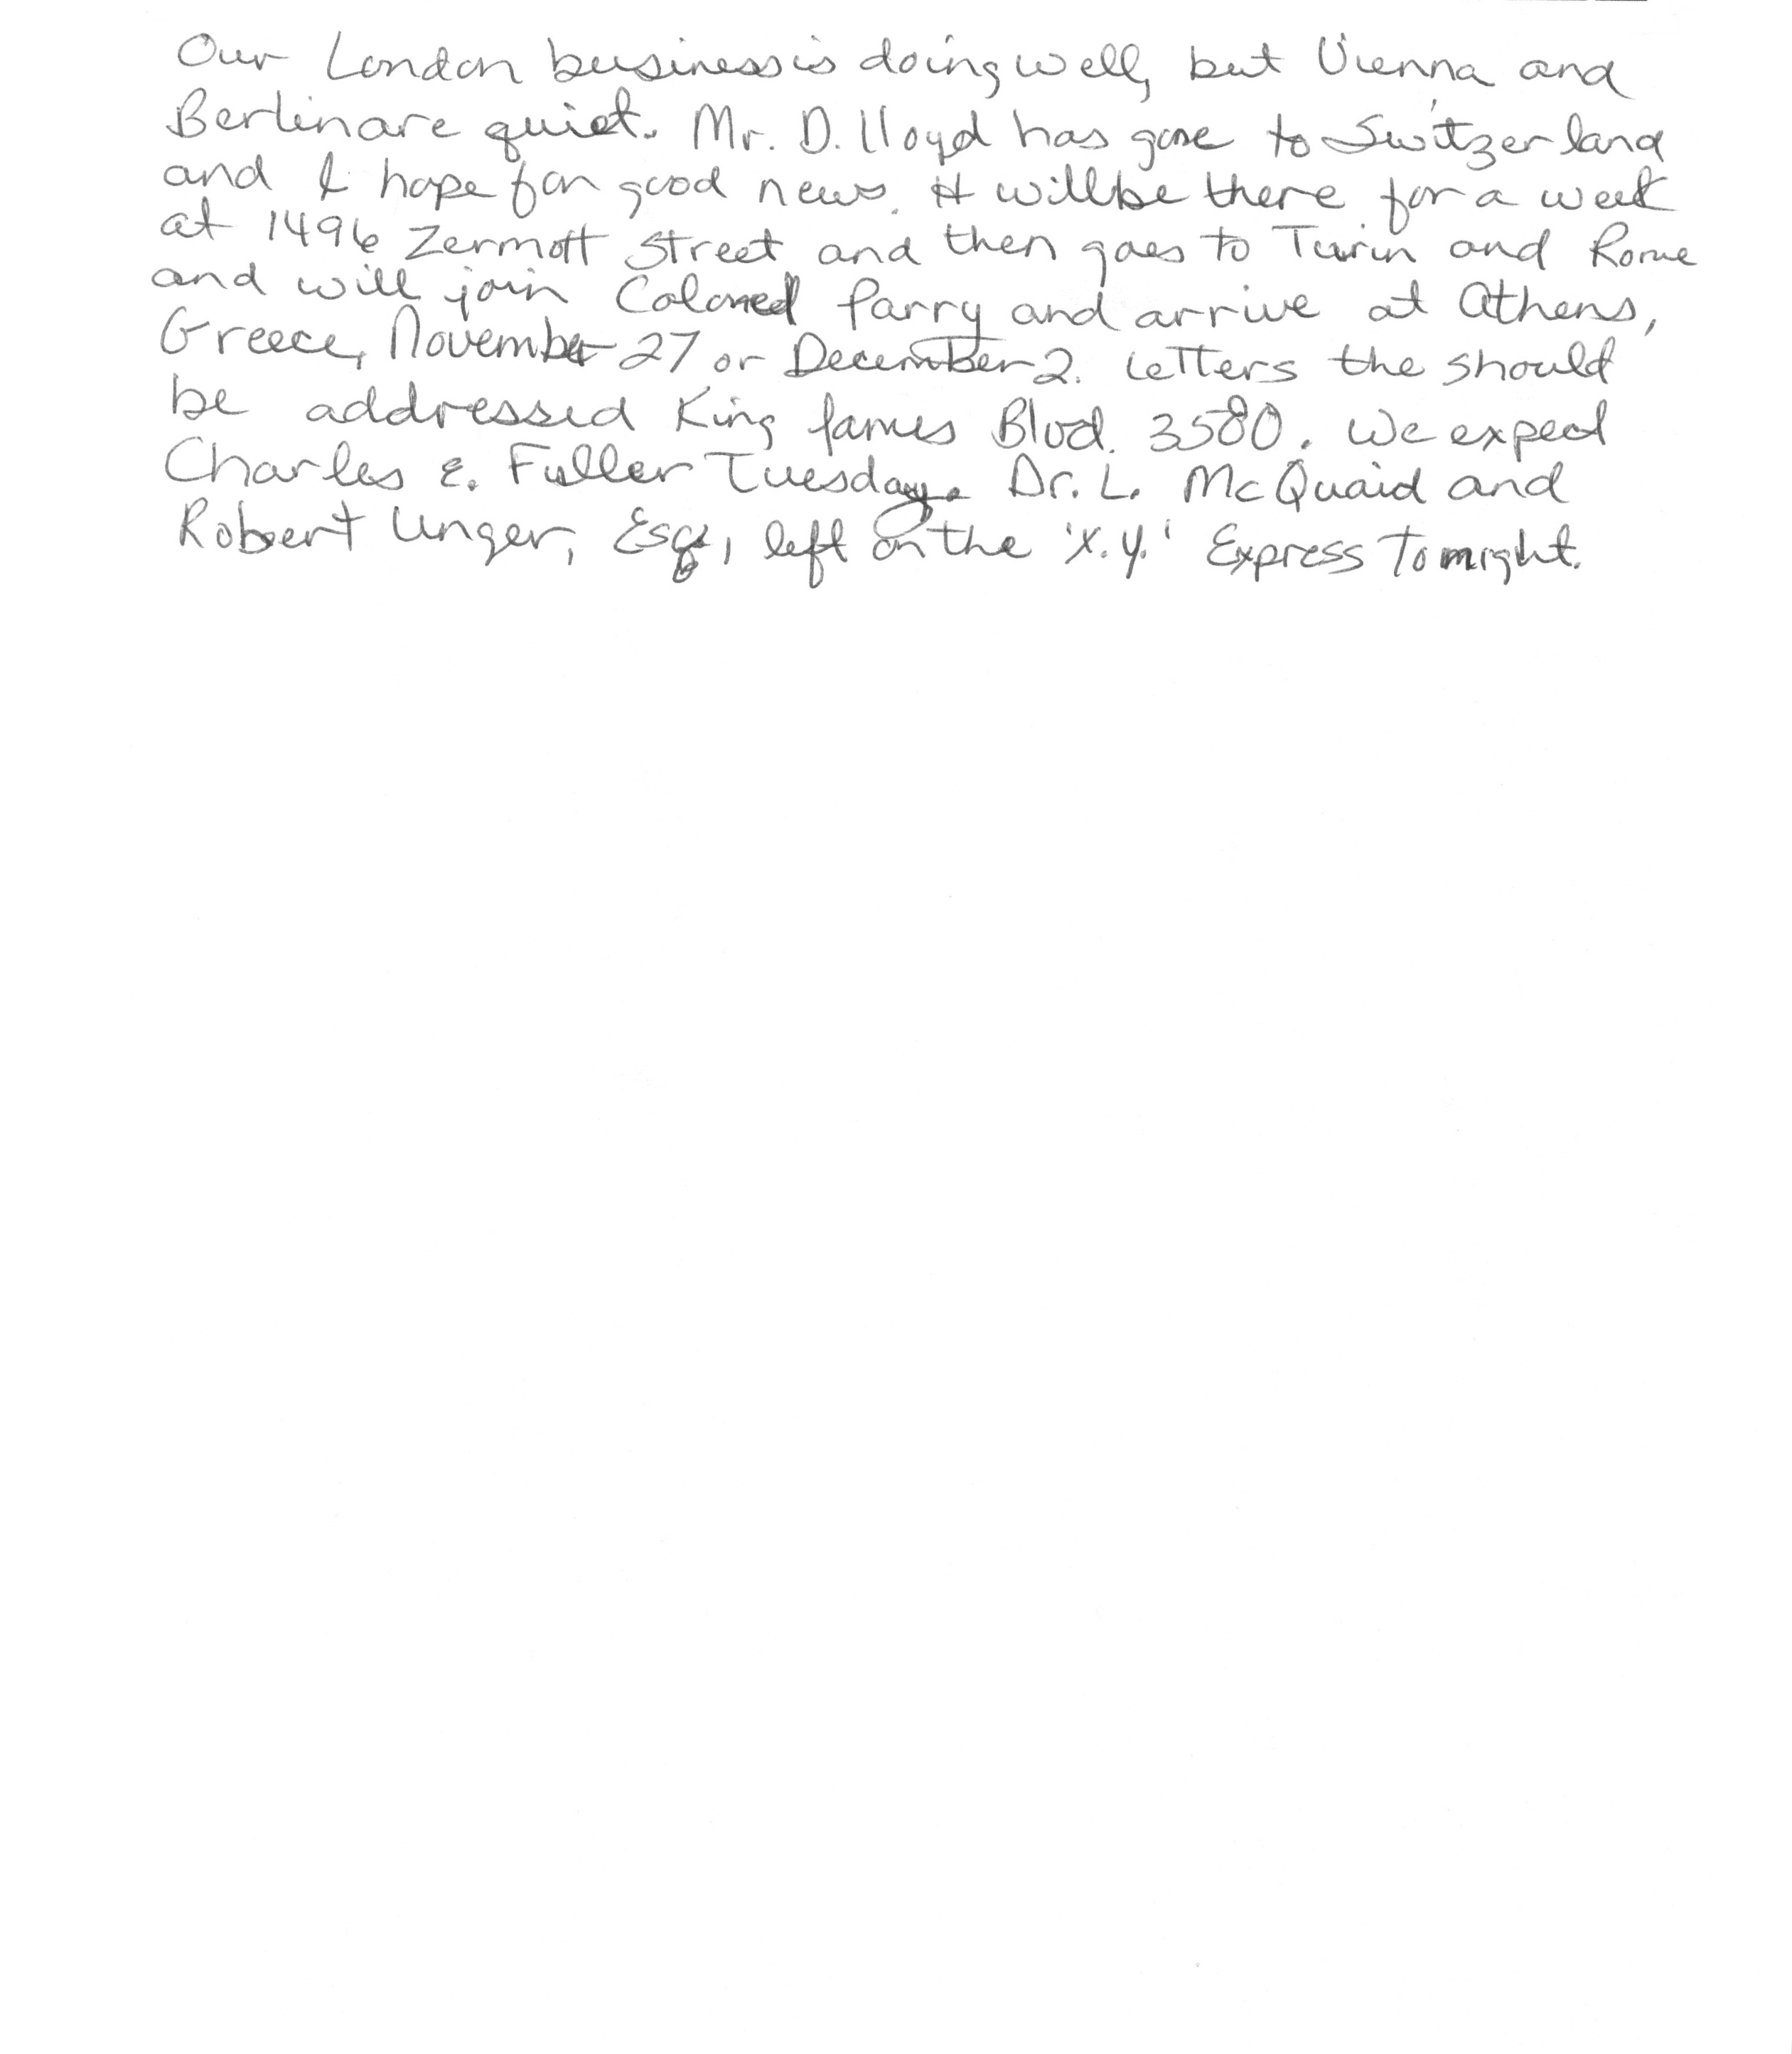 Our London business is doing well, but Vienna and
Berlin are quiet. Mr. D. Lloyd has gone to Switzerland
and I hope for good news. It will be there for a week
at 1496 Zermott Street and then goes to Turin and Rome
and will join Colonel Parry and arrive at Athens,
Greece, November 27 or December 2. Letters the should
be addressed King James Blvd. 3580. We expect
Charles E. Fuller Tuesday. Dr. L. McQuaid and
Robert Unger, Esq., left on the 'X.Y.' Express Tonight.